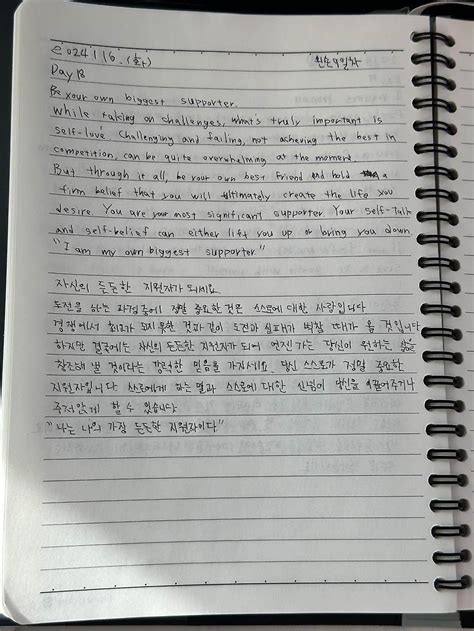 2024 1 16. (화) 왼손 9일차
Day 18
Be your own biggest supporter.
While taking on challenges, what's truly important is
self-love. Challenging and failing, not achieving the best in
competition, can be quite overwhelming at the moment.
But through it all, be your own best friend and hold a
firm belief that you will ultimately create the life you
desire. You are your most significant supporter. Your self-talk
and self-belief can either lift you up or bring you down.
"I am my own biggest supporter"
자신의 든든한 지원자가 되세요.
도전을 하는 과정중에 정말 중요한 것은 스스로에 대한 사랑입니다
경쟁에서 최고가 되지 못한 것과 같이 도전과 실패가 벅찰 때가 올 것입니다
하지만 결국에는 자신의 든든한 지원자가 되어 언젠가는 당신이 원하는 삶을
창조해 낼 것이라는 강력한 믿음을 가지세요. 당신 스스로가 정말 중요한
지원자입니다 스스로에게 하는 말과 스스로에 대한 신념이 당신을 이끌어주거나
주저앉게 할 수 있습니다
"나는 나의 가장 든든한 지원자이다"